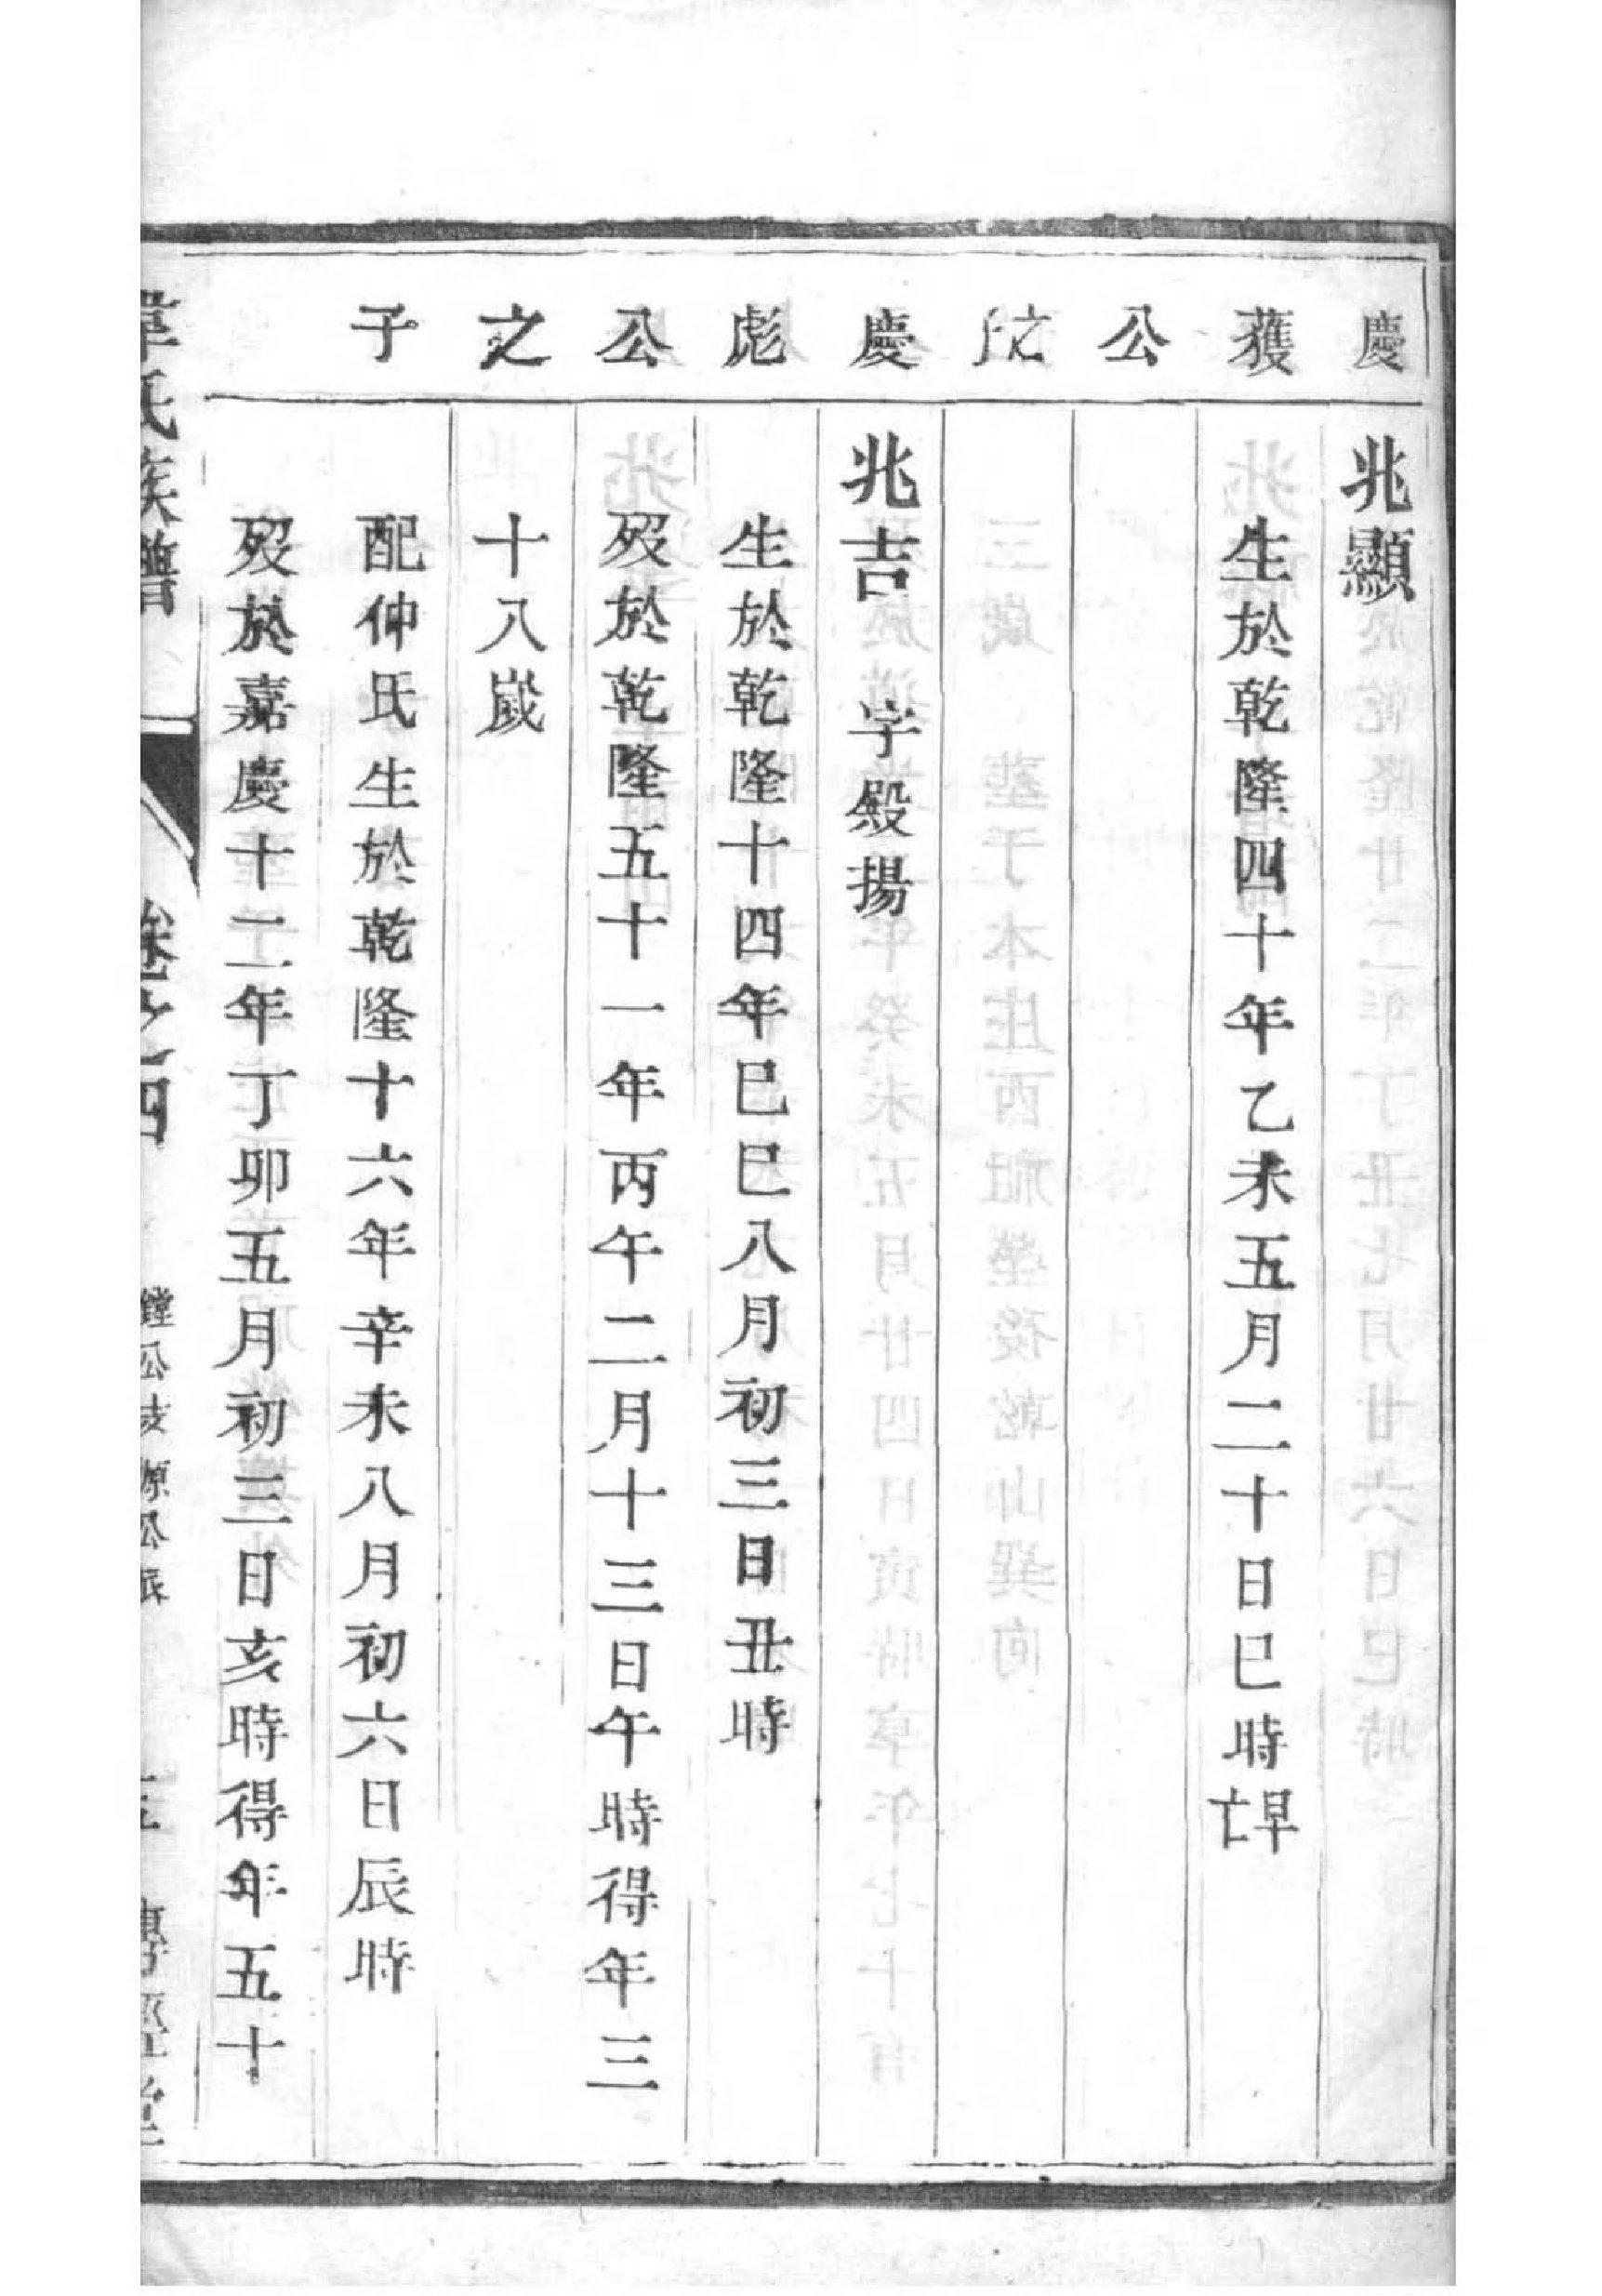 慶獲公
慶彪公之子
兆顯
生於乾隆四十年乙未五月二十日巳時早亡
兆吉 字殿揚
生於乾隆十四年巳巳八月初三日丑時
歿於乾隆五十一年丙午二月十三日午時得年三
十八歲
配仲氏生於乾隆十六年辛未八月初六日辰時
歿於嘉慶十二年丁卯五月初三日亥時得年五十
氏族譜
卷之四